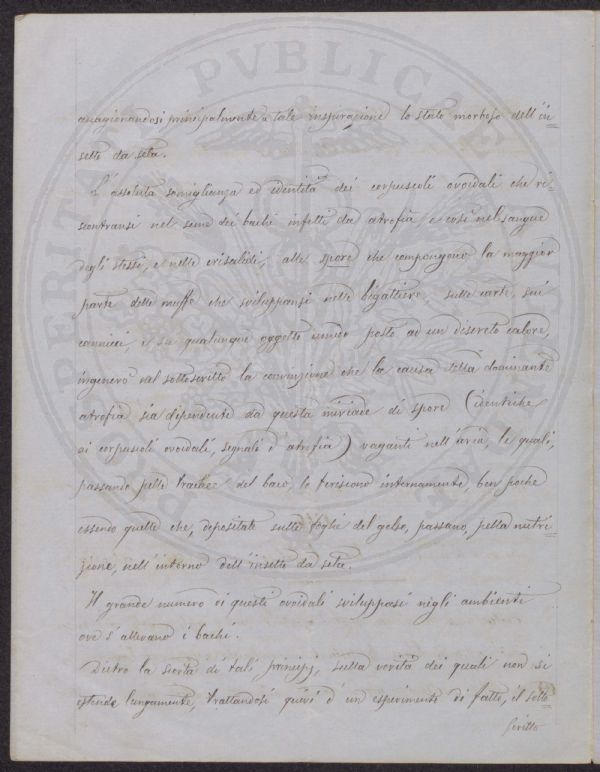 cagionandosi principalmente a tale inspirazione lo stato morboso dell'in=
setto da seta.
L'assoluta somiglianza ed identità dei corpuscoli ovoidali che ri=
scontransi nel seme dei bachi infetti da atrofia e così nel sangue
degli stessi, e nelle crisalidi, alle spore che compongono la maggior
parte delle muffe che sviluppansi nelle bigattiere, sulle carte, sui
cannicci e su qualunque oggetto umido posto ad un discreto calore,
ingenerò nel sottoscritto la convinzione che la causa della dominante
atrofia sia dipendente da questa miriade di spore (identiche
ai corpuscoli ovoidali, segnali d'atrofia) vaganti nell'aria, le quali,
passando pelle trachee del baco, lo feriscono internamente, ben poche
essendo quelle che, depositate sulle foglie del gelso, passano, pella nutri=
zione, nell'interno dell'insetto da seta.
Il grande numero di questi ovoidali sviluppasi negli ambienti
ove s'allevano i bachi.
Dietro la scorta di tali principj, sulla verità dei quali non si
estende lungamente, trattandosi quivi d'un esperimento di fatto, il sotto=
scritto